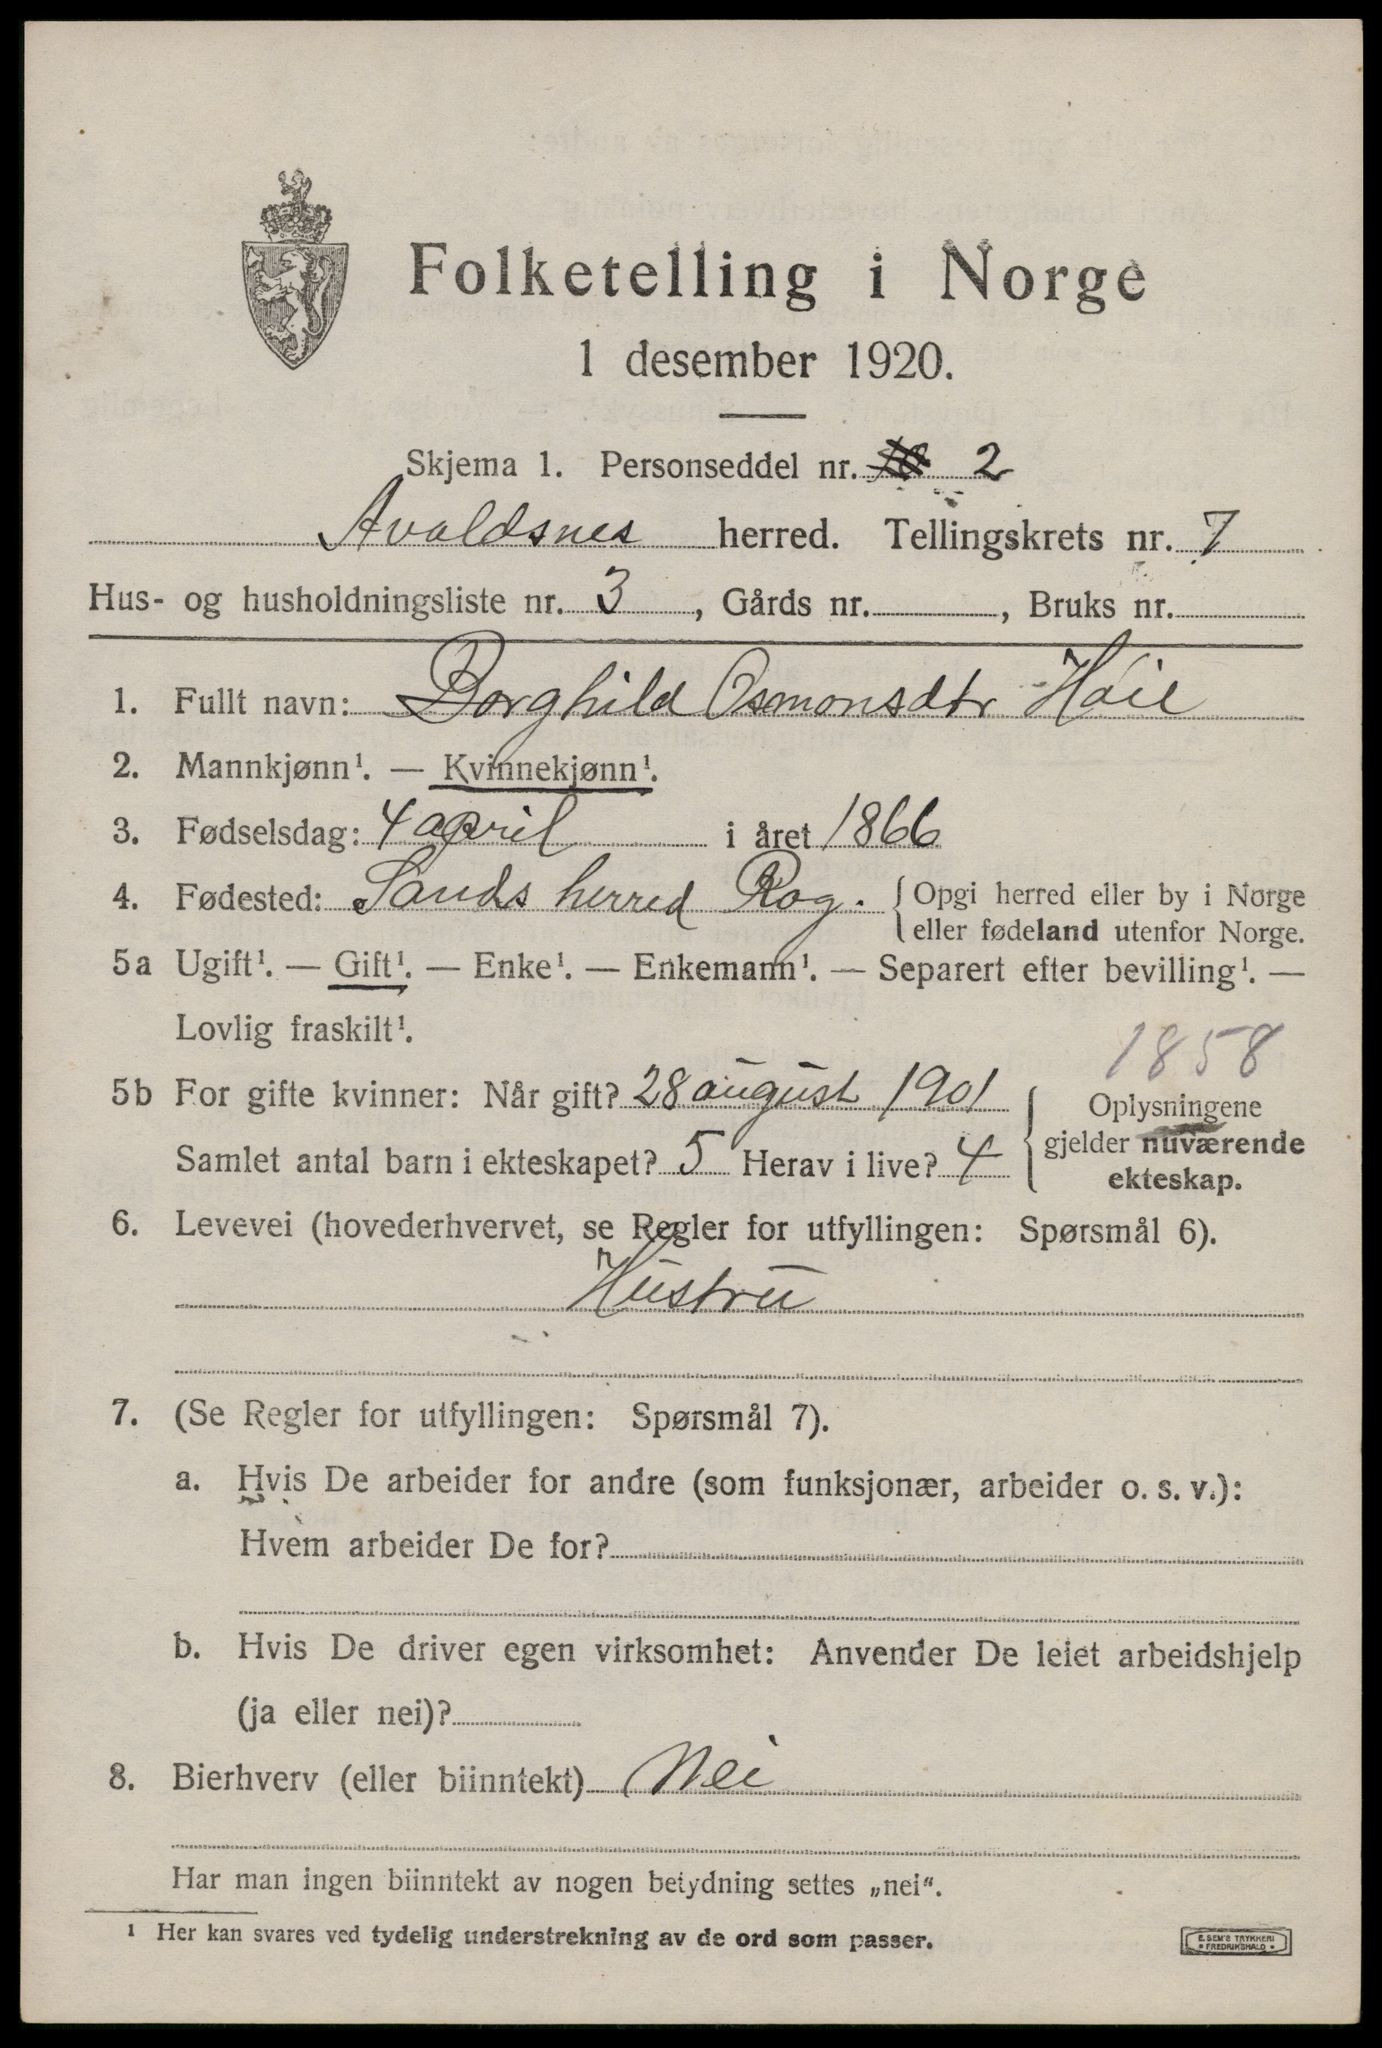 Folketelling i Norge
1 desember 1920.
Skjema 1. Personseddel nr. 2
Avaldsnes herred. Tellingskrets nr. 7
Hus- og husholdningsliste nr. 3, Gårds nr. , Bruks nr.
1. Fullt navn: Borghild Osmonsdtr Høie
2. Mannkjønn¹. — Kvinnekjønn¹.
3. Fødselsdag: 4 april i året 1866
4. Fødested: Sands herred Rog. { Opgi herred eller by i Norge
eller fødeland utenfor Norge.
5a Ugift¹. — Gift¹. — Enke¹. — Enkemann¹. — Separert efter bevilling¹. —
Lovlig fraskilt¹.
1858
5b For gifte kvinner: Når gift? 28 august 1901 { Oplysningene
gjelder nuværende
ekteskap.
Samlet antal barn i ekteskapet? 5 Herav i live? 4
6. Levevei (hovederhvervet, se Regler for utfyllingen: Spørsmål 6).
Hustru
7. (Se Regler for utfyllingen: Spørsmål 7).
a. Hvis De arbeider for andre (som funksjonær, arbeider o. s. v.):
Hvem arbeider De for?
b. Hvis De driver egen virksomhet: Anvender De leiet arbeidshjelp
(ja eller nei)?
8. Bierhverv (eller biinntekt) Nei
Har man ingen biinntekt av nogen betydning settes „nei“.
¹ Her kan svares ved tydelig understrekning av de ord som passer.
E. SEM'S TRYKKERI
FREDRIKSHALD